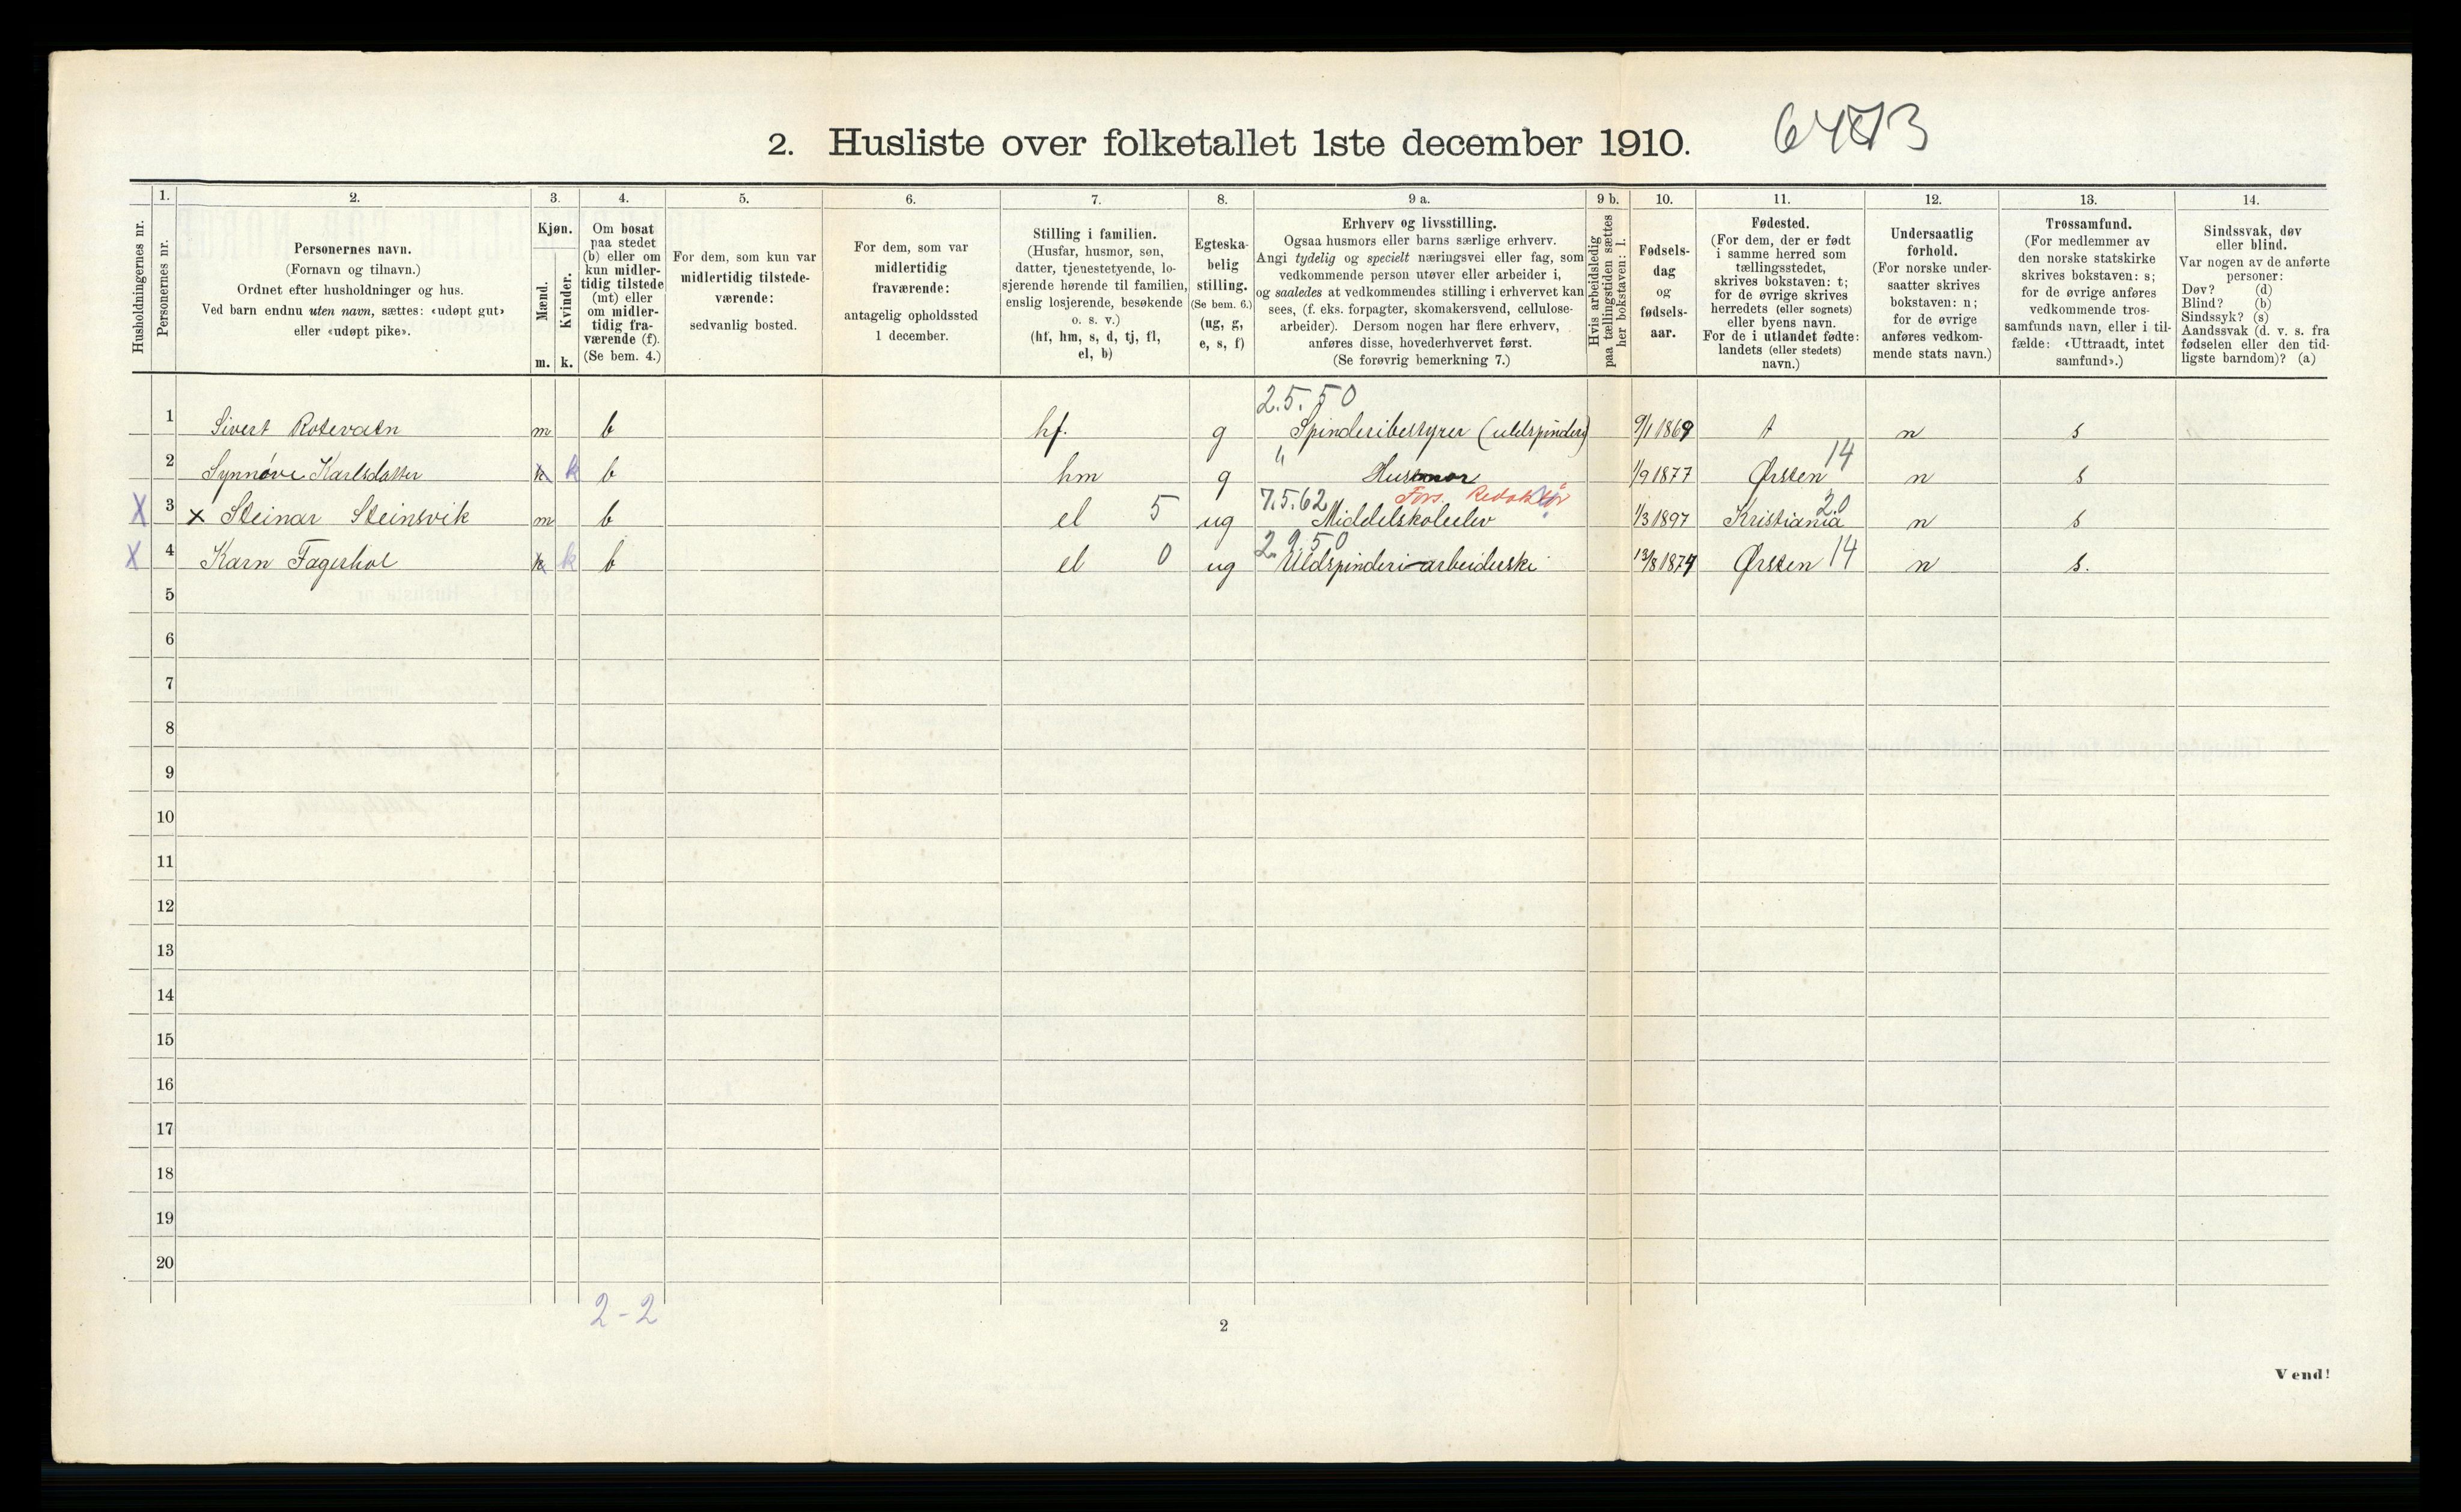 2. Husliste over folketallet 1ste december 1910.
Husholdningernes nr.
1.
Personernes nr.
2.
Personernes navn.
(Fornavn og tilnavn.)
Ordnet efter husholdninger og hus.
Ved barn endnu uten navn, sættes: «udøpt gut»
eller «udøpt pike».
3.
Kjøn.
Mænd.
Kvinder.
m. k.
4.
Om bosat
paa stedet
(b) eller om
kun midler-
tidig tilstede
(mt) eller
om midler-
tidig fra-
værende (f).
(Se bem. 4.)
5.
For dem, som kun var
midlertidig tilstede-
værende:
sedvanlig bosted.
6.
For dem, som var
midlertidig
fraværende:
antagelig opholdssted
1 december.
7.
Stilling i familien.
(Husfar, husmor, søn,
datter, tjenestetyende, lo-
sjerende hørende til familien,
enslig losjerende, besøkende
o. s. v.)
(hf, hm, s, d, tj, fl,
el, b)
8.
Egteska-
belig
stilling.
(Se bem. 6.)
(ug, g,
e, s, f)
9 a.
Erhverv og livsstilling.
Ogsaa husmors eller barns særlige erhverv.
Angi tydelig og specielt næringsvei eller fag, som
vedkommende person utøver eller arbeider i,
og saaledes at vedkommendes stilling i erhvervet kan
sees, (f. eks. forpagter, skomakersvend, cellulose-
arbeider). Dersom nogen har flere erhverv,
anføres disse, hovederhvervet først.
(Se forøvrig bemerkning 7.)
9 b.
Hvis arbeidsledig
paa tællingstiden sættes
her bokstaven: l.
10.
Fødsels-
dag
og
fødsels-
aar.
11.
Fødested.
(For dem, der er født
i samme herred som
tællingsstedet,
skrives bokstaven: t;
for de øvrige skrives
herredets (eller sognets)
eller byens navn.
For de i utlandet fødte:
landets (eller stedets)
navn.)
12.
Undersaatlig
forhold.
(For norske under-
saatter skrives
bokstaven: n;
for de øvrige
anføres vedkom-
mende stats navn.)
13.
Trossamfund.
(For medlemmer av
den norske statskirke
skrives bokstaven: s;
for de øvrige anføres
vedkommende tros-
samfunds navn, eller i til-
fælde: «Uttraadt, intet
samfund».)
14.
Sindssvak, døv
eller blind.
Var nogen av de anførte
personer:
Døv? (d)
Blind? (b)
Sindssyk? (s)
Aandssvak (d. v. s. fra
fødselen eller den tid-
ligste barndom)? (a)
2.5.50
1 Sivert Rotevatn m b hf. g Spinderibestyrer (uldspinderi) 9/1 1869 t n s
2 Synnøve Karlsdatter k k b hm g " Husmor 1/9 1877 Ørsten 14 n s
7.5.62 Fors. Redaktør
X 3 x Steinar Steinsvik m b el 5 ug Middelskoleelev 1/3 1897 Kristiania 20 n s
2.9.50
X 4 Karn Fagerhol k k b el 0 ug Uldspinderi-arbeiderske 13/8 1874 Ørsten 14 n s.
5
6
7
8
9
10
11
12
13
14
15
16
17
18
19
20
2-2
2
Vend!